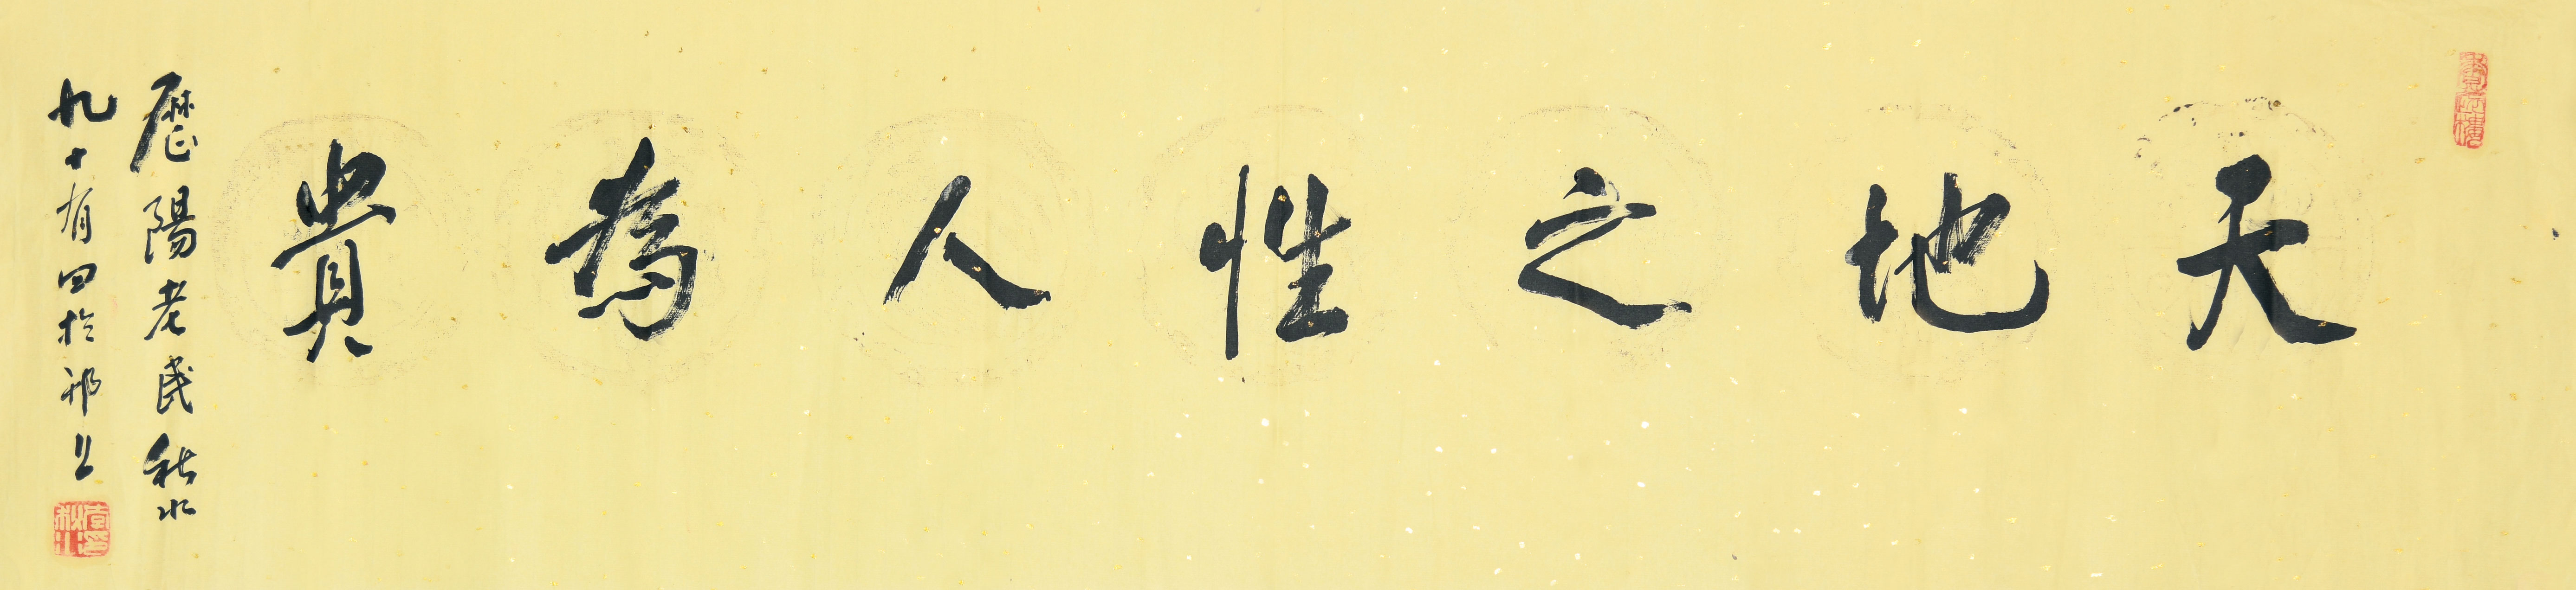 天地之性人為貴
歷陽老民秋水
九十有四於祁上